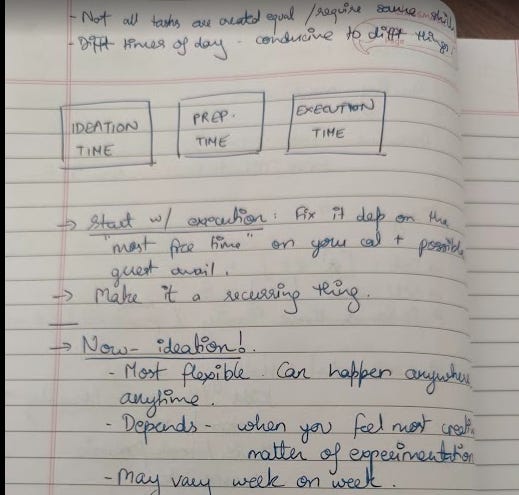 - Not all tasks are created equal / require same skill
- Diff times of day - conducive to diff things
IDEATION TIME
PREP. TIME
EXECUTION TIME
→ Start w/ execution: Fix it dep on the
"most free time" on your cal + possible
guest avail.
→ Make it a recurring thing.
→ Now - ideation!
- Most flexible. Can happen anywhere
anytime.
- Depends - when you feel most creative
matter of experimentation
- May vary week on week.